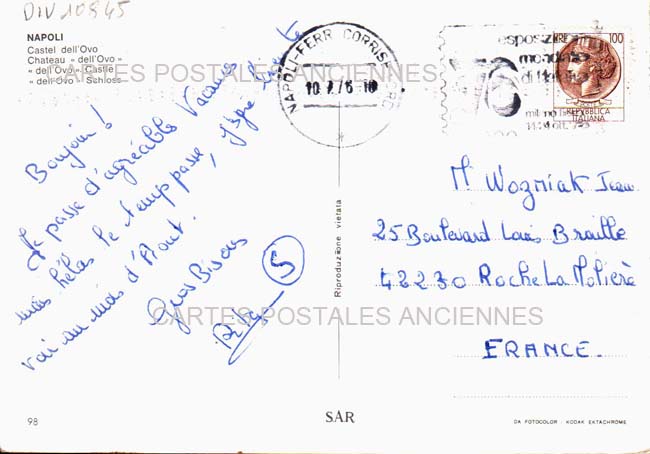 DIV 10845
NAPOLI
Castel dell'Ovo
Chateau « dell'Ovo »
« dell'Ovo » Castle
« dell'Ovo » Schloss
CARTES POSTALES ANCIENNES
NAPOLI-FERR. CORRISP.
76
esposizione
mondiale
milano
100
REPVBBLICA
ITALIANA
Bonjour!
Je passe d'agréables vacances
mais hélas le temps passe, j'spe te
voir au mois d'Aout.
Gros Bisous
Riproduzione vietata
Mr Wozniak Jean
25 Boulevard Louis Braille
42230 Roche La Molière
FRANCE.
CARTES POSTALES ANCIENNES
98
SAR
DA FOTOCOLOR - KODAK EKTACHROME